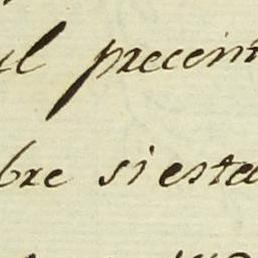 ul precent
bre si esta